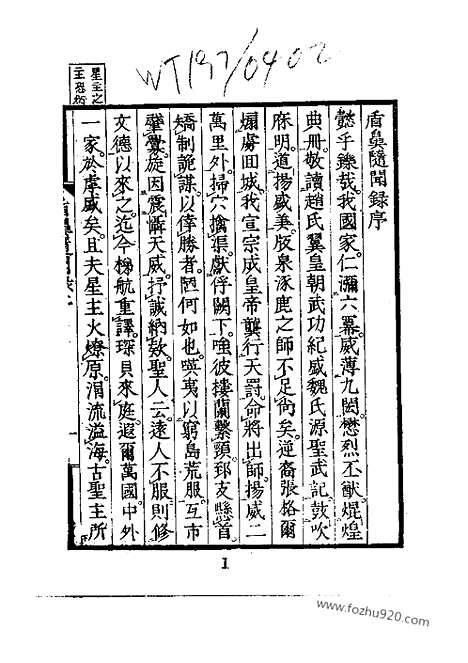 WT197/0402
星主之
盾鼻隨聞錄序
懿乎鑠哉我國家仁瀰六幕威薄九閎懋烈丕猷焜煌
典冊敬讀趙氏翼皇朝武功紀盛魏氏源聖武記鼓吹
庥明道揚盛美阪泉涿鹿之師不足尚矣逆裔張格爾
煽虜回城我宣宗成皇帝龔行天罰命將出師揚威二
萬里外掃穴擒渠獻俘闕下唯彼樓蘭繫頸郅支縣首
矯制詭謀以倖勝者陋何如也嘆夷以窮島荒服互市
肇釁旋因震懾天威抒誠納欵聖人云遠人不服則修
文德以來之迄今梯航重譯琛貝來庭遐邇萬國中外
一家於虖盛矣且夫星主火燎原涓流溢海古聖主所
1
www.fozhu920.com